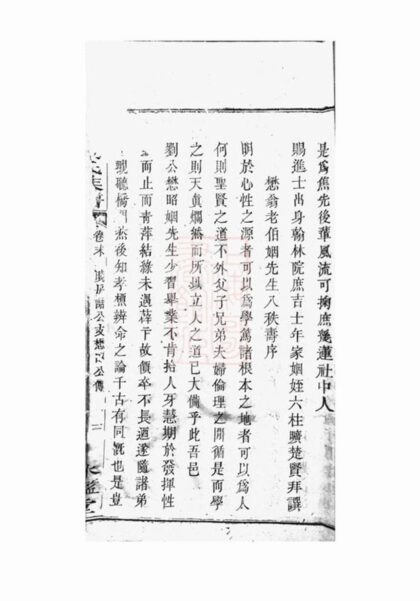 是爲焦先後輩風流可掬庶幾蓮社中人
賜進士出身翰林院庶吉士年家姻姪六柱曠楚賢拜譔
懋翁老伯姻先生八秩壽序
明於心性之源者可以爲學篤諸根本之地者可以爲人
何則聖賢之道不外父子兄弟夫婦倫理之間循是而學
之則天眞爛然而所以立人之道已大備乎此吾邑
劉公懋昭姻先生少習舉業不肯拾人牙慧期於發揮性
而止而青萍結綠未遇薛卞故價卒不長遁遂隨諸弟
觀聽橋門然後知孝標辨命之論千古有同慨也是豈
卷末 公支懋 公傳 三